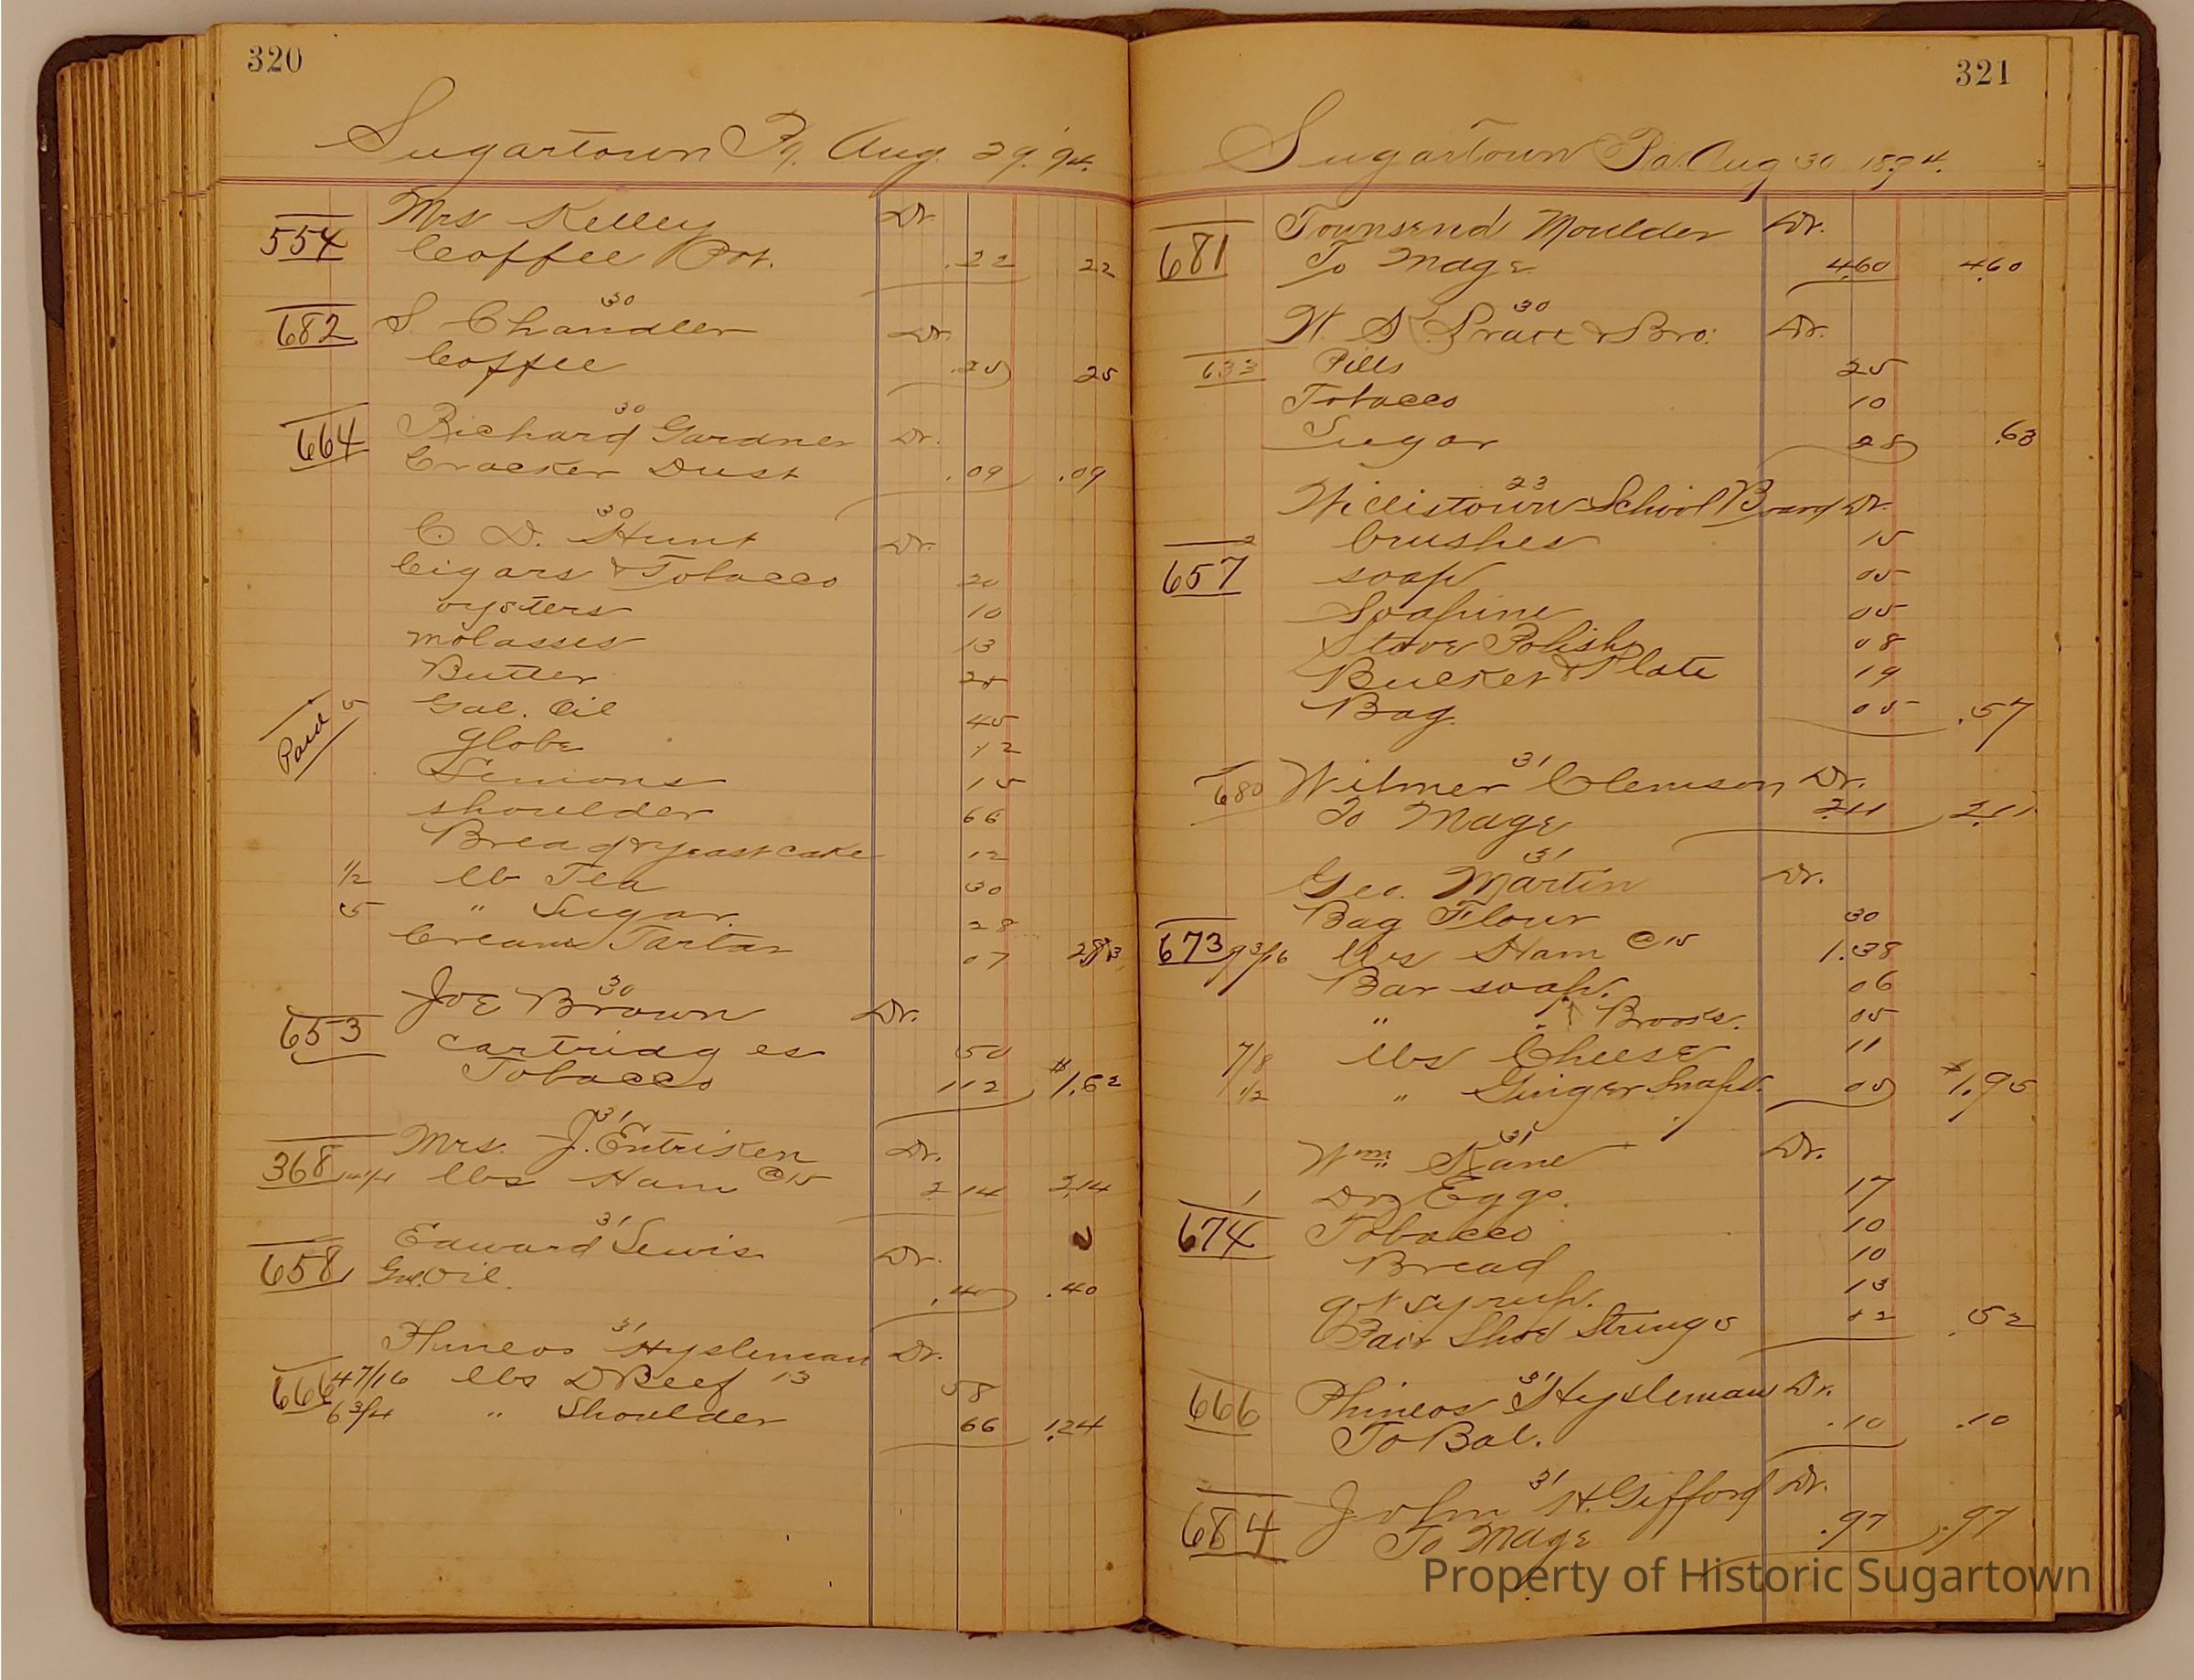 320
Sugartown Pa, Aug. 29. 94.
Mrs Kelley Dr.
554 Coffee Pot. .22 22
30
682 S Chandler Dr.
Coffee .25 25
30
664 Richard Gardner Dr.
Cracker Dust .09 .09
30
C. D. Hunt Dr.
Cigars & Tobacco 20
oysters 10
molasses 13
Butter 25
5 Gal. Oil 45
Paid
globe 12
Lemons 15
shoulder 66
Bread & yeast cake 12
1/2 lb Tea 30
5 " Sugar 28
Cream Tartar 07
30
Joe Brown Dr.
653 cartridges 50
Tobacco 112 $1.62
31
Mrs. J. Entriken Dr.
368 14 1/4 lbs Ham @15 2 14 2.14
31
Edward Lewis Dr.
658 Gal. Oil. .40 .40
31
Phineos Hysleman Dr.
666 4 7/16 lbs D Beef 13 58
6 3/4 " Shoulder 66 1.24
321
Sugartown Pa. Aug 30 1894.
Townsend Moulder Dr.
681 To Mage 4.60 4.60
30
W. S. Pratt & Bro. Dr.
633 Pills 25
Tobacco 10
Sugar 28 .63
23
Willistown School Board Dr.
2 brushes 15
657 soap 05
Soapine 05
Stove Polish 08
Bucket & Plate 19
Bag. 05 .57
31
680 Wilmer Clemson Dr.
To Mage 2.11 2.11
31
Geo. Martin Dr.
Bag Flour 30
673 9 3/16 lbs Ham @15 1.38
Bar soap. 06
" " 05
7/8 lbs Cheese 11
1/2 " Ginger Snaps. 05 $1.95
31
Wm Kane Dr.
1 Dz Eggs. 17
674 Tobacco 10
Bread 10
qt syrup. 13
Pair Shoe Strings 02 .52
31
666 Phineos Hysleman Dr.
To Bal. .10 .10
31
John H. Gifford Dr.
684 To Mage .97 .97
Property of Historic Sugartown